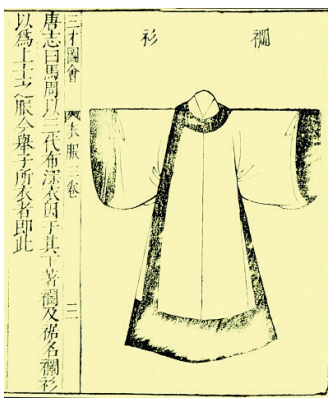 襴衫
三才圖會 衣服三卷
唐志曰馬周以三代布深衣因于其下著襴及裾名襴衫
以爲上士之服今舉子所衣者即此